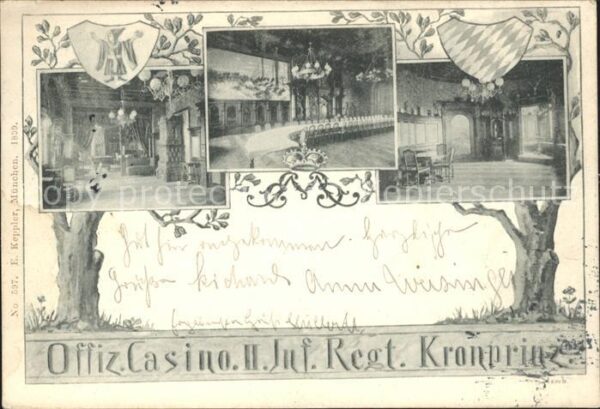 No 597. E. Keppler, München. 1899.
Gut hier angekommen. Herzliche
Grüße Richard Anna
Offiz. Casino. II. Inf. Regt. Kronprinz